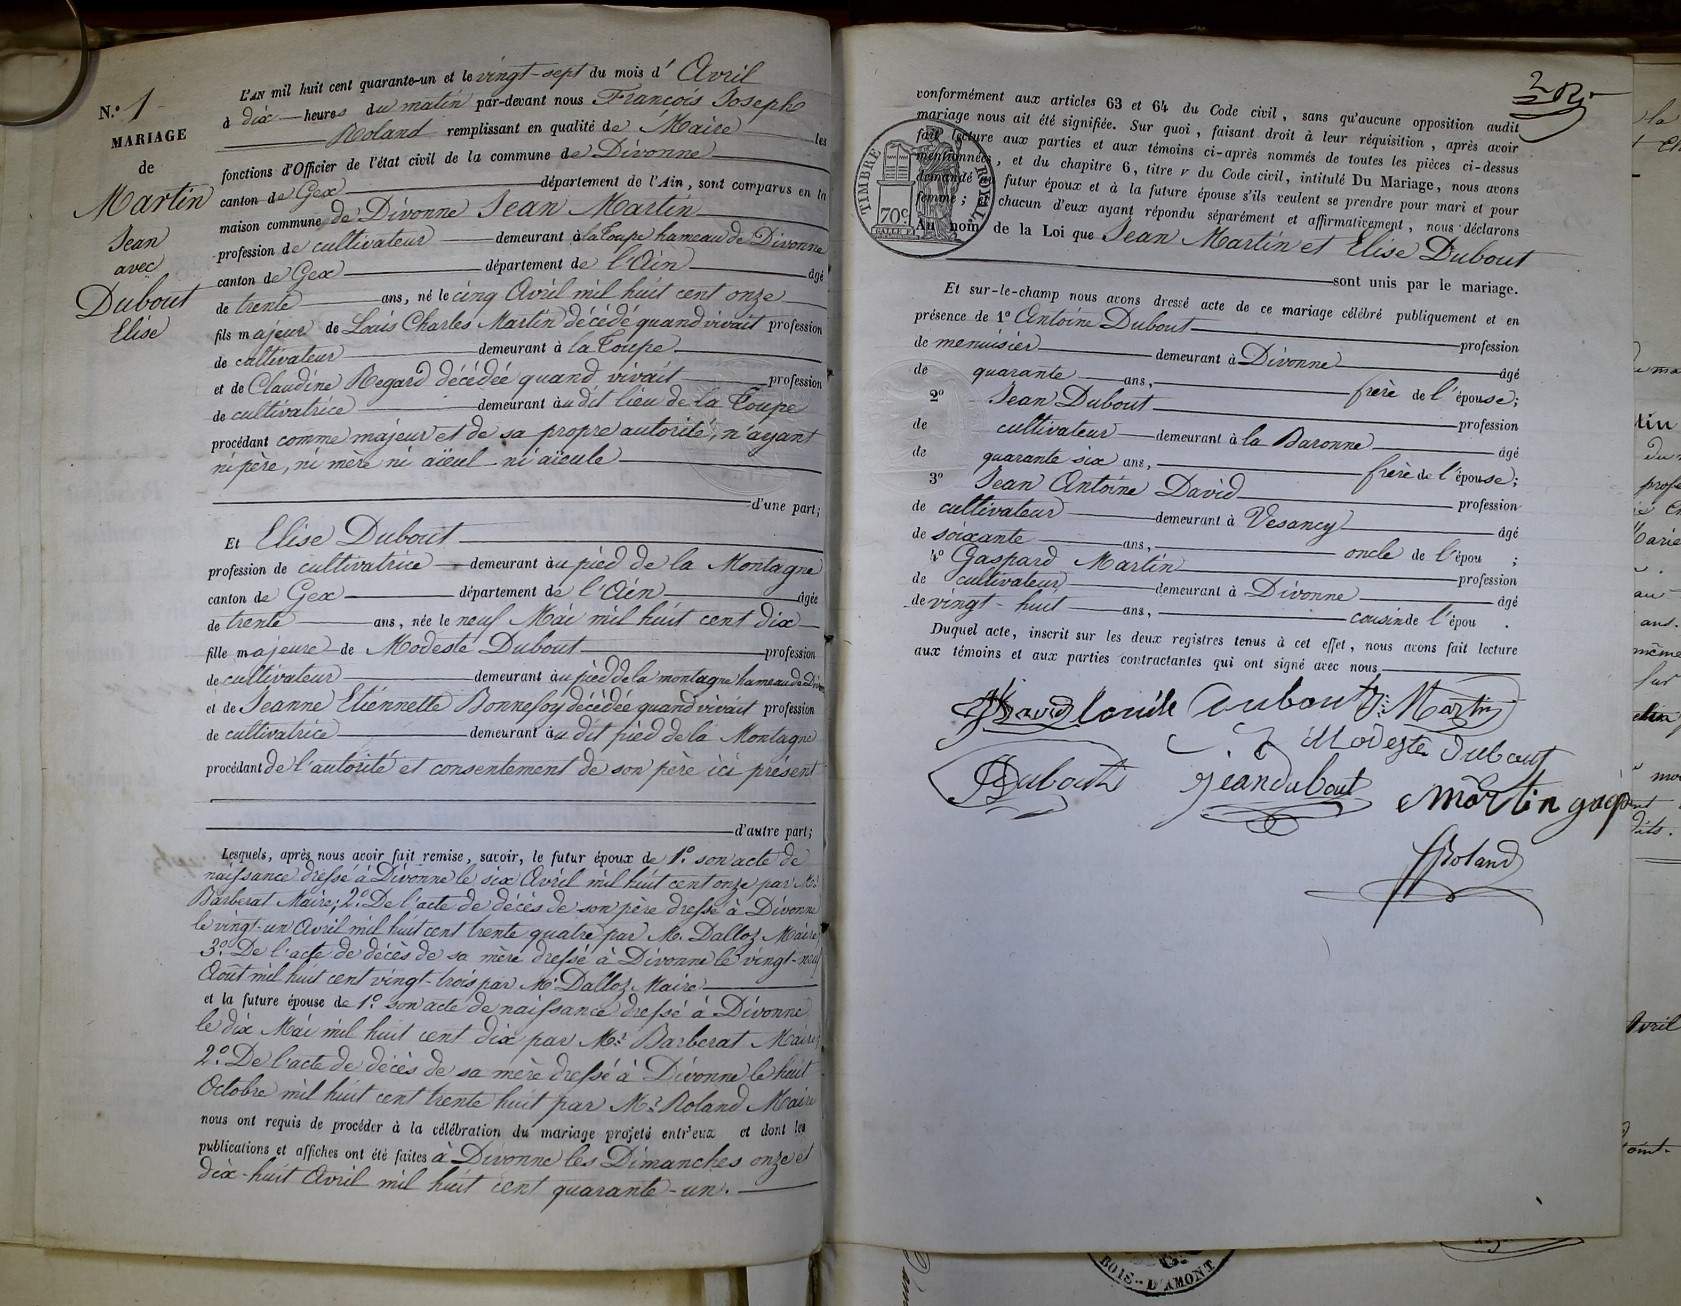 N.º 1
MARIAGE
de
Martin
Jean
avec
Dubout
Elise
L'AN mil huit cent quarante-un et le vingt-sept du mois d' Avril
à dix heures du matin par-devant nous François Joseph
Roland remplissant en qualité de Maire les
fonctions d'Officier de l'état civil de la commune de Divonne
canton de Gex département de l'Ain, sont comparus en la
maison commune de Divonne Jean Martin
profession de cultivateur demeurant à la Toupe hameau de Divonne
canton de Gex département de l'Ain âgé
de trente ans, né le cinq Avril mil huit cent onze
fils majeur de Louis Charles Martin décédé quand vivait profession
de cultivateur demeurant à la Toupe
et de Claudine Regard décédée quand vivait profession
de cultivatrice demeurant au dit lieu de la Toupe
procédant comme majeur et de sa propre autorité, n'ayant
ni père, ni mère ni aïeul ni aïeule
d'une part;
Et Elise Dubout
profession de cultivatrice demeurant au pied de la Montagne
canton de Gex département de l'Ain âgée
de trente ans, née le neuf Mai mil huit cent dix
fille majeure de Modeste Dubout profession
de cultivateur demeurant au pied de la montagne hameau de Divonne
et de Jeanne Etiennette Bonnefoy décédée quand vivait profession
de cultivatrice demeurant au dit pied de la Montagne
procédant de l'autorité et consentement de son père ici présent
d'autre part;
Lesquels, après nous avoir fait remise, savoir, le futur époux de 1.º son acte de
naissance dressé à Divonne le six Avril mil huit cent onze par Mr
Barberat Maire; 2.º De l'acte de décès de son père dressé à Divonne
le vingt-un Avril mil huit cent trente quatre par M. Dalloz Maire
3.º De l'acte de décès de sa mère dressé à Divonne le vingt-neuf
Août mil huit cent vingt-trois par Mr Dalloz Maire
et la future épouse de 1.º son acte de naissance dressé à Divonne
le dix Mai mil huit cent dix par Mr Barberat Maire;
2.º De l'acte de décès de sa mère dressé à Divonne le huit
Octobre mil huit cent trente huit par Mr Roland Maire
nous ont requis de procéder à la célébration du mariage projeté entr'eux et dont les
publications et affiches ont été faites à Divonne les Dimanches onze et
dix-huit Avril mil huit cent quarante-un.
conformément aux articles 63 et 64 du Code civil, sans qu'aucune opposition audit
mariage nous ait été signifiée. Sur quoi, faisant droit à leur réquisition, après avoir
fait lecture aux parties et aux témoins ci-après nommés de toutes les pièces ci-dessus
mentionnées, et du chapitre 6, titre v du Code civil, intitulé Du Mariage, nous avons
demandé au futur époux et à la future épouse s'ils veulent se prendre pour mari et pour
femme; chacun d'eux ayant répondu séparément et affirmativement, nous déclarons
Au nom de la Loi que Jean Martin et Elise Dubout
sont unis par le mariage.
TIMBRE ROYAL
70 c
Et sur-le-champ nous avons dressé acte de ce mariage célébré publiquement et en
présence de 1º Antoine Dubout profession
de menuisier demeurant à Divonne âgé
de quarante ans, frère de l'épouse;
2º Jean Dubout profession
de cultivateur demeurant à la Baronne âgé
de quarante six ans, frère de l'épouse;
3º Jean Antoine David profession
de cultivateur demeurant à Vesancy âgé
de soixante ans, oncle de l'épou ;
4º Gaspard Martin profession
de cultivateur demeurant à Divonne âgé
de vingt-huit ans, cousin de l'épou .
Duquel acte, inscrit sur les deux registres tenus à cet effet, nous avons fait lecture
aux témoins et aux parties contractantes qui ont signé avec nous
David Louise Dubout J: Martin
Modeste Dubout
Dubout jean dubout martin gasp
Roland
BOIS-D'AMONT